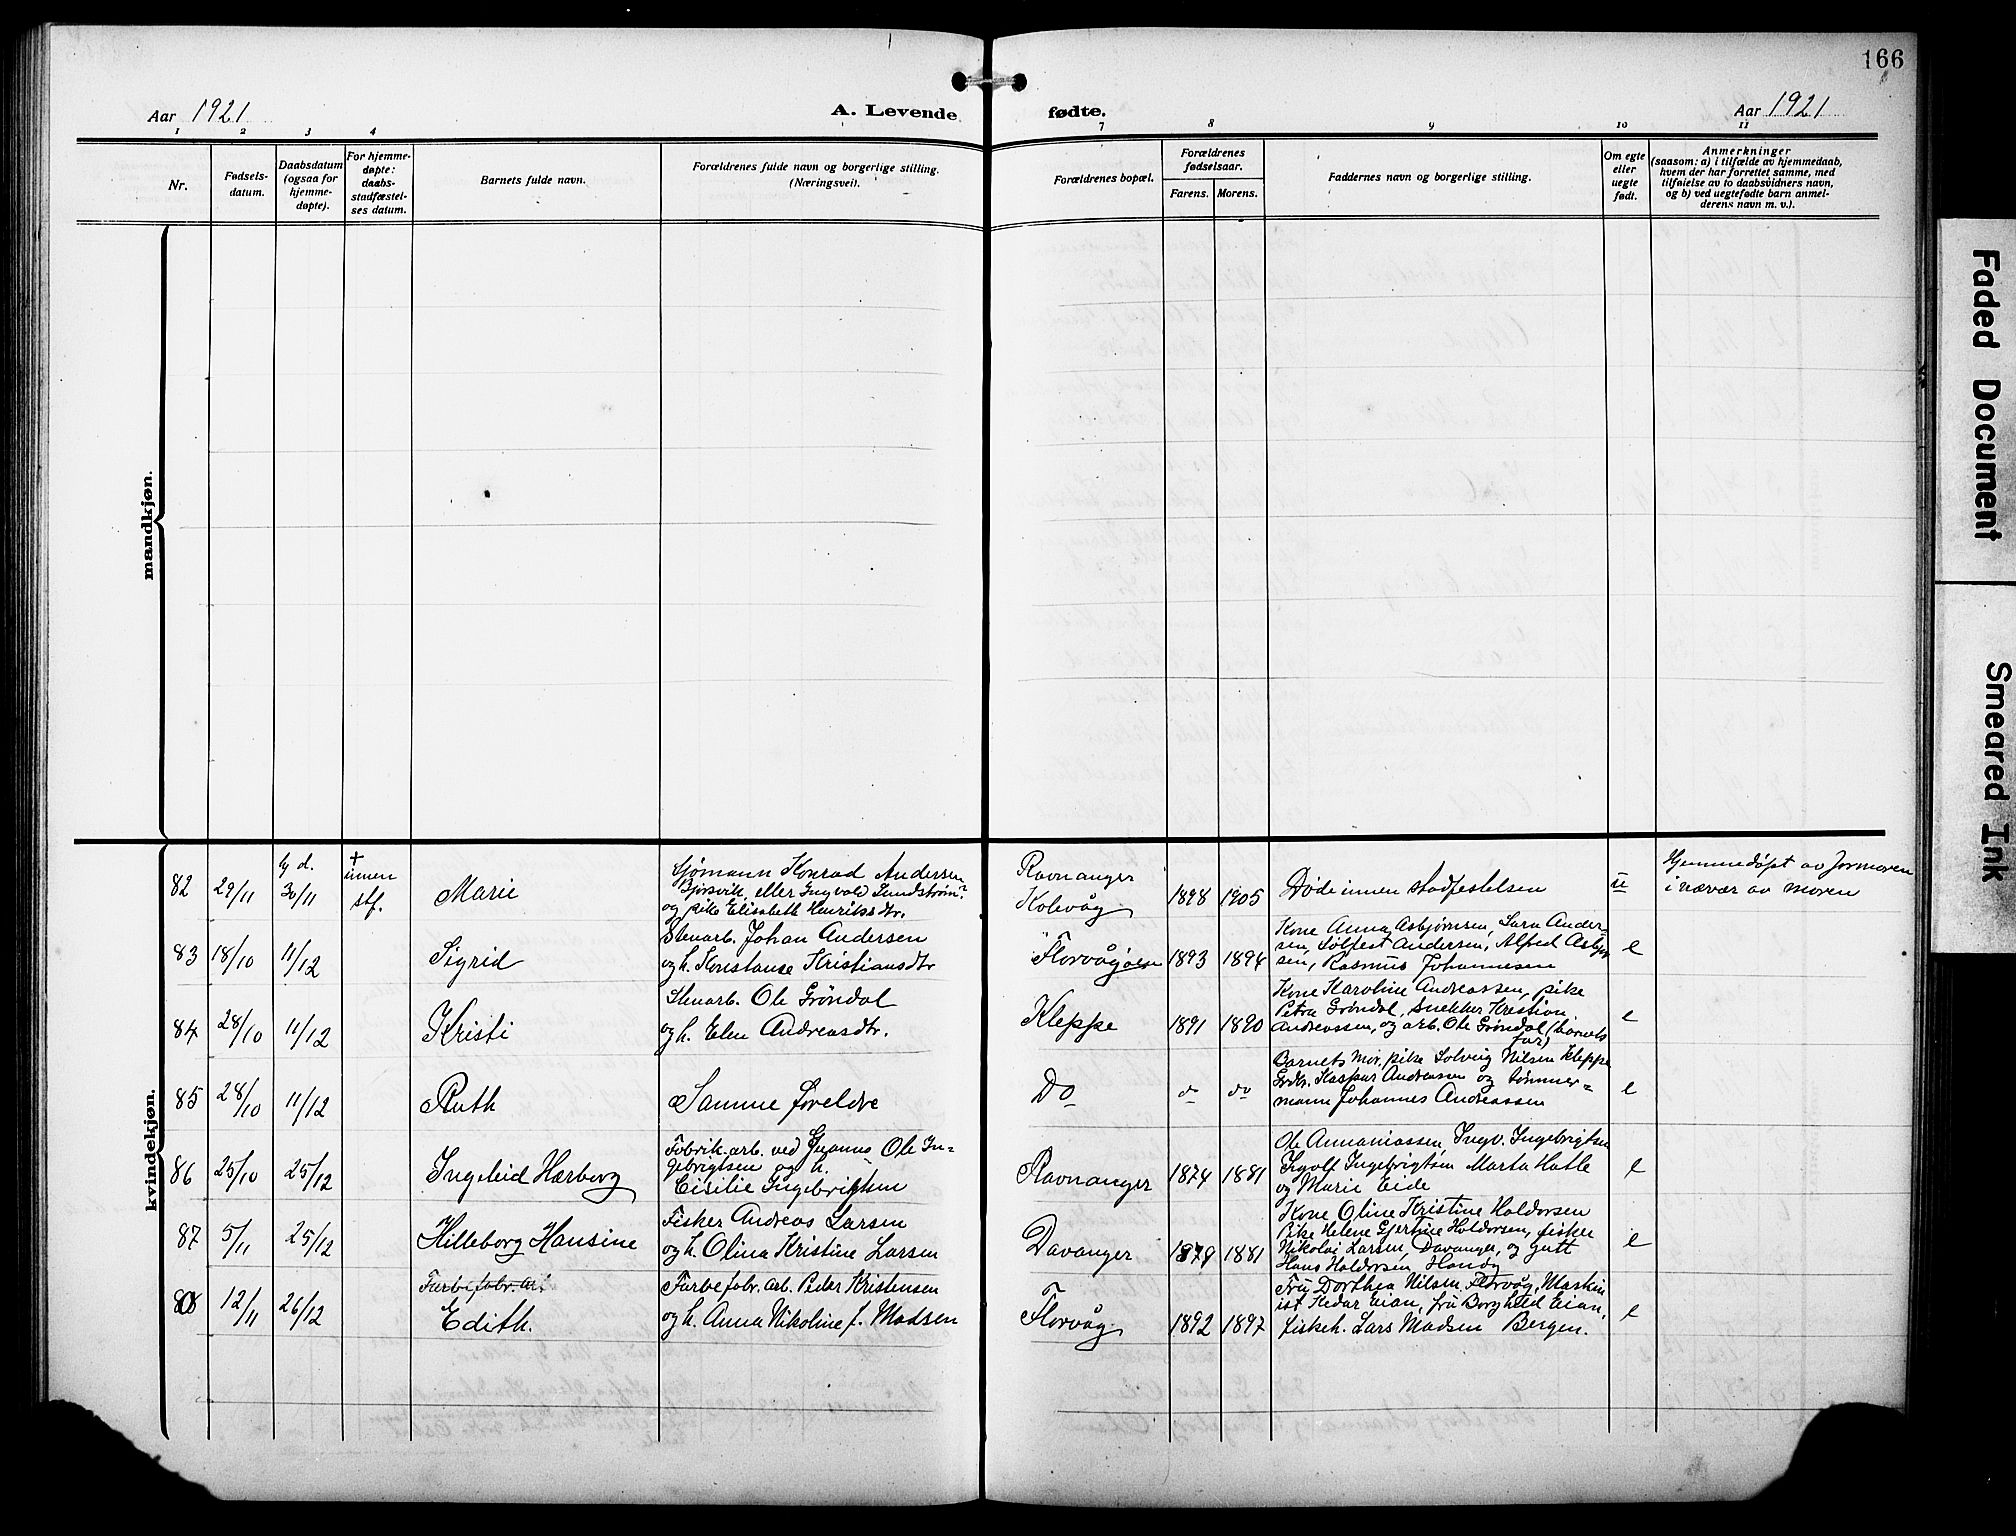 166
Aar 1921
A. Levende
fødte.
Aar 1921
1 2 3 4 7 8 9 10 11
Nr.
Fødsels-
datum.
Daabsdatum
(ogsaa for
hjemme-
døpte).
For hjemme-
døpte:
daabs-
stadfæstel-
ses datum.
Barnets fulde navn.
Forældrenes fulde navn og borgerlige stilling.
(Næringsvei).
Forældrenes bopæl.
Forældrenes
fødselsaar.
Farens. Morens.
Faddernes navn og borgerlige stilling.
Om egte
eller
uegte
født.
Anmerkninger
(saasom: a) i tilfælde av hjemmedaab,
hvem der har forrettet samme, med
tilføielse av to daabsvidners navn,
og b) ved uegtefødte barn anmel-
derens navn m. v.).
mandkjøn.
kvindekjøn.
82 29/11
hj d.
30/11
+
innen
stf.
Marie
Sjømann Konrad Andersen
Bjørsvik eller Ingvald Lundstrøm?
og pike Elisabeth Henriksdtr.
Ravnanger
Kolevåg
1898 1905
Døde innen stadfestelsen
u
Hjemmedøpt av Jormoren
i nævær av moren
83 18/10 11/12 Sigrid
Stenarb. Johan Andersen
og h. Konstanse Kristiansdtr
Florvågøen
1893 1894
Kone Anna Asbjørnsen, Sara Ander-
sen, Sølfest Andersen, Alfred Asbjørn
sen, Rasmus Johannesen
e
84 28/10 11/12 Kristi
Stenarb. Ole Grøndal
og h. Elen Andreasdtr.
Kleppe
1891 1890
Kone Karoline Andreassen, pike
Petra Grøndal, Snekker Kristian
Andreassen, og arb. Ole Grøndal (barnets
far)
e
85 28/10 11/12 Ruth
Samme foreldre
Do
do do
Barnets Mor, pike Solveig Nilsen Kleppe
Grdbr. Kaspar Andreasen og tømmer=
mann Johannes Andreassen
e
86 25/10 25/12 Ingeleid Hærborg
Fabrik.arb. ved Guanus Ole In-
gebrigtsen og h.
Cisilie Ingebrigtsen
Ravnanger
1874 1881
Ole Annaniassen Ingv. Ingebrigtsen
Ingolf Ingebrigtsen Marta Hatle
og Marie Eide
e
87 5/11 25/12 Hilleborg Hansine
Fisker Andreas Larsen
og h. Olina Kristine Larsen
Davanger
1879 1881
Kone Oline Kristine Haldorsen
Pike Helene Gjertine Haldorsen, fisker
Nikolai Larsen, Davanger, og gutt
Hans Haldorsen, Hanøy
e
88 12/11 26/12
Farbefabr. arb.
Edith.
Farbefabr. arb. Peder Kristensen
og h. Anna Nikoline f. Madsen
Florvåg
1892 1897
Fru Dorthea Nilsen, Florvåg, Maskin
ist Hedar Eian, fru Borghild Eian,
fiskeh. Lars Madsen Bergen.
e
Faded Document
Smeared Ink